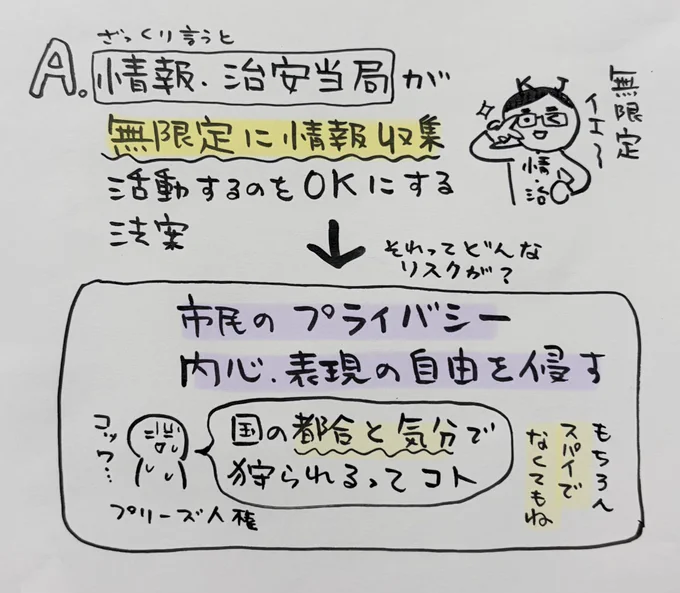 ざっくり言うと
A. 情報・治安当局が
無限定に情報収集
活動するのをOKにする
法案
K J
情・治
無限定
イエ〜
それってどんな
リスクが?
市民のプライバシー
内心、表現の自由を侵す
コッワ…
国の都合と気分で
狩られるってコト
プリーズ人権
もちろん
スパイで
なくてもね